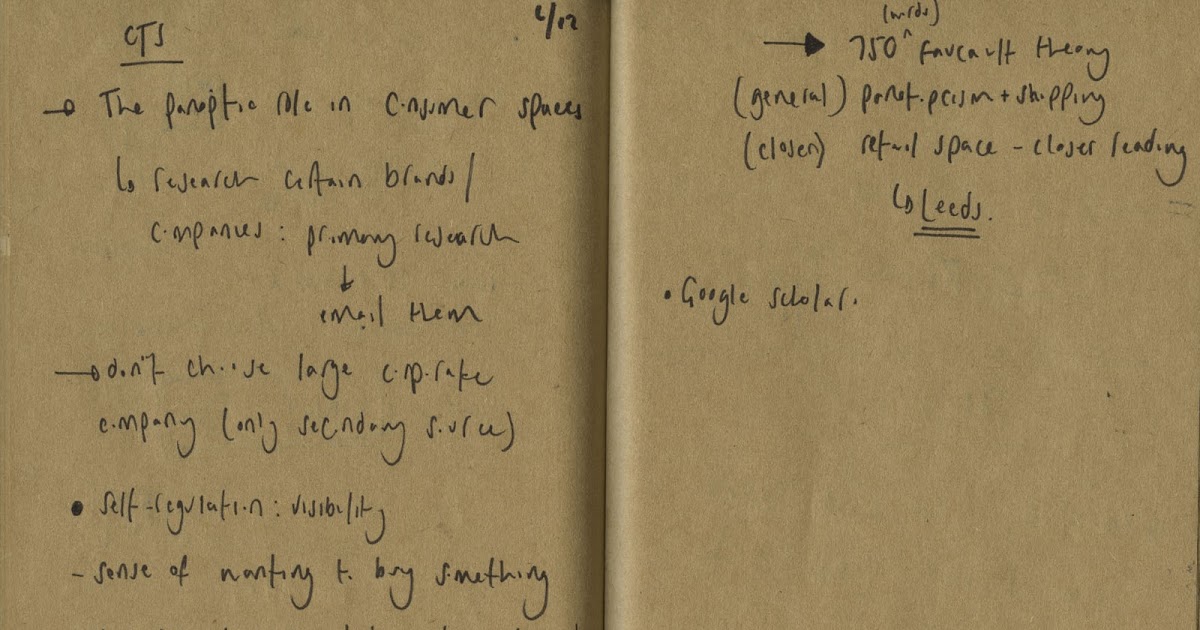 CTS
6/12
→ The panoptic role in consumer spaces
↳ research certain brands/
companies: primary research
↓
email them
→ don't choose large corporate
company (only secondary source)
• self-regulation: visibility
- sense of wanting to buy something
(words)
→ 750^ foucault theory
(general) panopticism + shipping
(closer) retail space - closer reading
↳ Leeds.
• Google scholar.